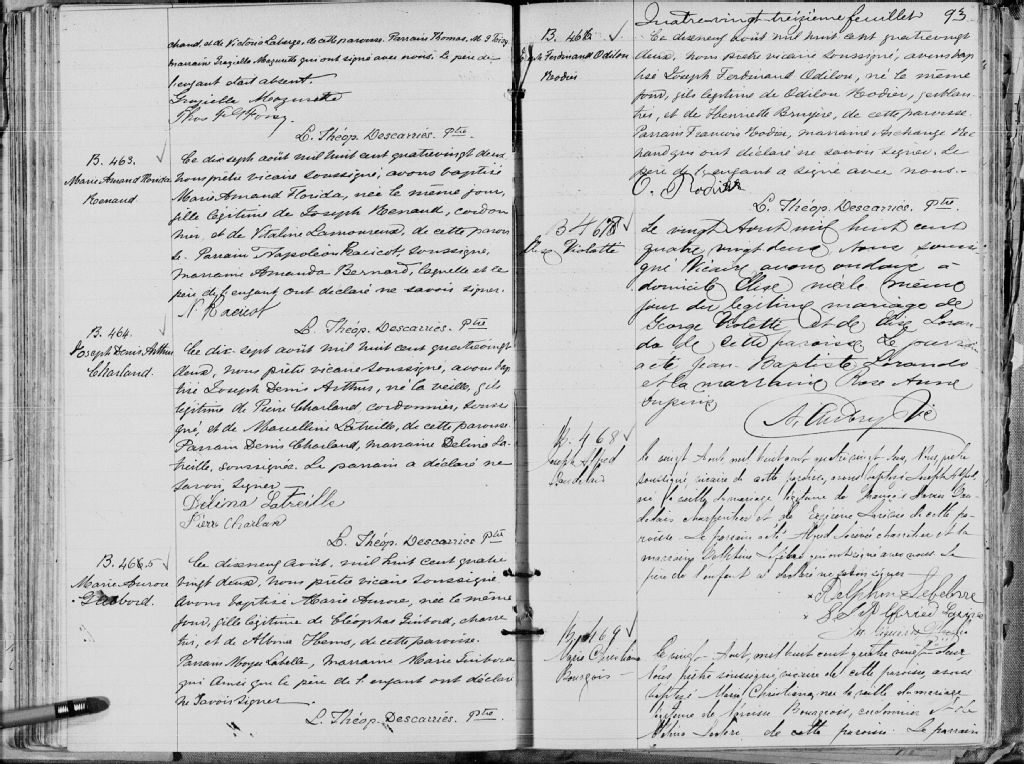 chand, et de Victoria Laberge, de cette paroisse. Parrain Thomas
marraine Graziella Marquette qui ont signé avec nous. Le père de
l'enfant était absent.
Graziella Marquette
L. Théop. Descarries. Ptre
B. 463.
Marie Amand Florida
Renaud
Le dix sept août mil huit cent quatre vingt deux,
Nous prêtre vicaire soussigné, avons baptisé
Marie Amand Florida, née le même jour,
fille légitime de Joseph Renaud, cordon
nier, et de Vitaline Lamoureux, de cette parois
se. Parrain Napoléon Racicot, soussigné,
marraine Amanda Bernard, laquelle et le
père de l'enfant ont déclaré ne savoir signer.
N. Racicot
L. Théop. Descarries. Ptre
B. 464.
Joseph Denis Arthur
Charland.
Le dix-sept août mil huit cent quatre vingt
deux, nous prêtre vicaire soussigné, avons bap
tisé Joseph Denis Arthur, né la veille, fils
légitime de Pierre Charland cordonnier, souss
igné, et de Marcelline Latreille, de cette paroisse.
Parrain Denis Charland, marraine Delina La
treille, soussignée. Le parrain a déclaré ne
savoir signer
Délina Latreille
Pierre Charland
L. Théop. Descarries Ptre
B. 465
Marie Aurore
Guibord.
Le dixneuf août, mil huit cent quatre
vingt deux, nous prêtre vicaire soussigné
avons baptisé Marie Aurore, née le même
jour, fille légitime de Cléophas Guibord, charre
tier, et de Albina Hems, de cette paroisse.
Parrain Moyse Labelle, marraine Marie Guibord
qui ainsi que le père de l'enfant ont déclaré
ne savoir signer
L. Théop. Descarries. Ptre
Quatre-vingt-treizième feuillet 93
B. 466
Joseph Ferdinand Odilon
Rodier
Le dixneuf août mil huit cent quatre vingt
deux, nous prêtre vicaire soussigné, avons bap
tisé Joseph Ferdinand Odilon, né le même
jour, fils légitime de Odilon Rodier, ferblan
tier, et de Henriette Bruyère, de cette paroisse.
Parrain Francois Rodier, marraine Archange
qui ont déclaré ne savoir signer. Le
père de l'enfant a signé avec nous.
O. Rodier
L. Théop. Descarries. Ptre.
B 467
Elise Violette
Le vingt Aout mil huit cent
quatre vingt deux Nous sous
igné Vicaire avons ondoyé à
domicile Elise née le même
jour du légitime mariage de
George Violette et de Elise
de cette paroisse Le parrain
a été Jean Baptiste
et la marraine Rose Anna
A. Aubry Vic
B. 468
Joseph Alfred
Le vingt Aout mil huit cent quatre vingt deux, Nous prêtre
soussigné vicaire de cette paroisse, avons baptisé Joseph Alfred,
né la veille du mariage légitime de
charpentier et de de cette pa
roisse. Le parrain a été charretier et la
marraine Delphine Lefebvre qui ont signé avec nous. Le
père de l'enfant a déclaré ne savoir signer
Delphine Lefebvre
B. 469
Marie Christiana
Bourgeois
Le vingt Aout, mil huit cent quatre vingt deux,
Nous prêtre soussigné vicaire de cette paroisse avons
baptisé Marie Christiana, née la veille du mariage
légitime de Bourgeois, cordonnier et de
de cette paroisse. Le parrain